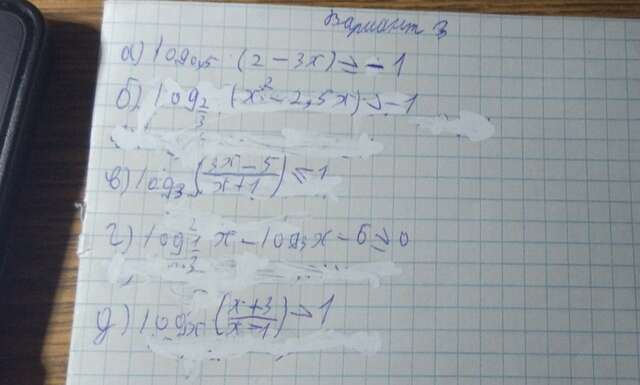 Вариант 3
а) log₀,₅ (2 – 3x) ≥ –1
б) log_{2/3} (x² – 2,5x) > –1
в) log₃ ((3x – 5)/(x + 1)) ≤ 1
г) log²_{1/3} x – log₃x – 6 ≥ 0
д) logₓ ((x + 3)/(x – 1)) > 1